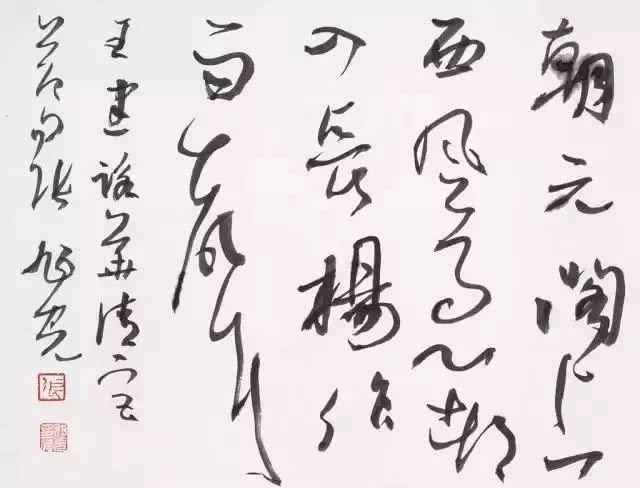 朝元閣上
西風急都
入長楊作
雨聲
王建詩華清宫
句張旭光
張